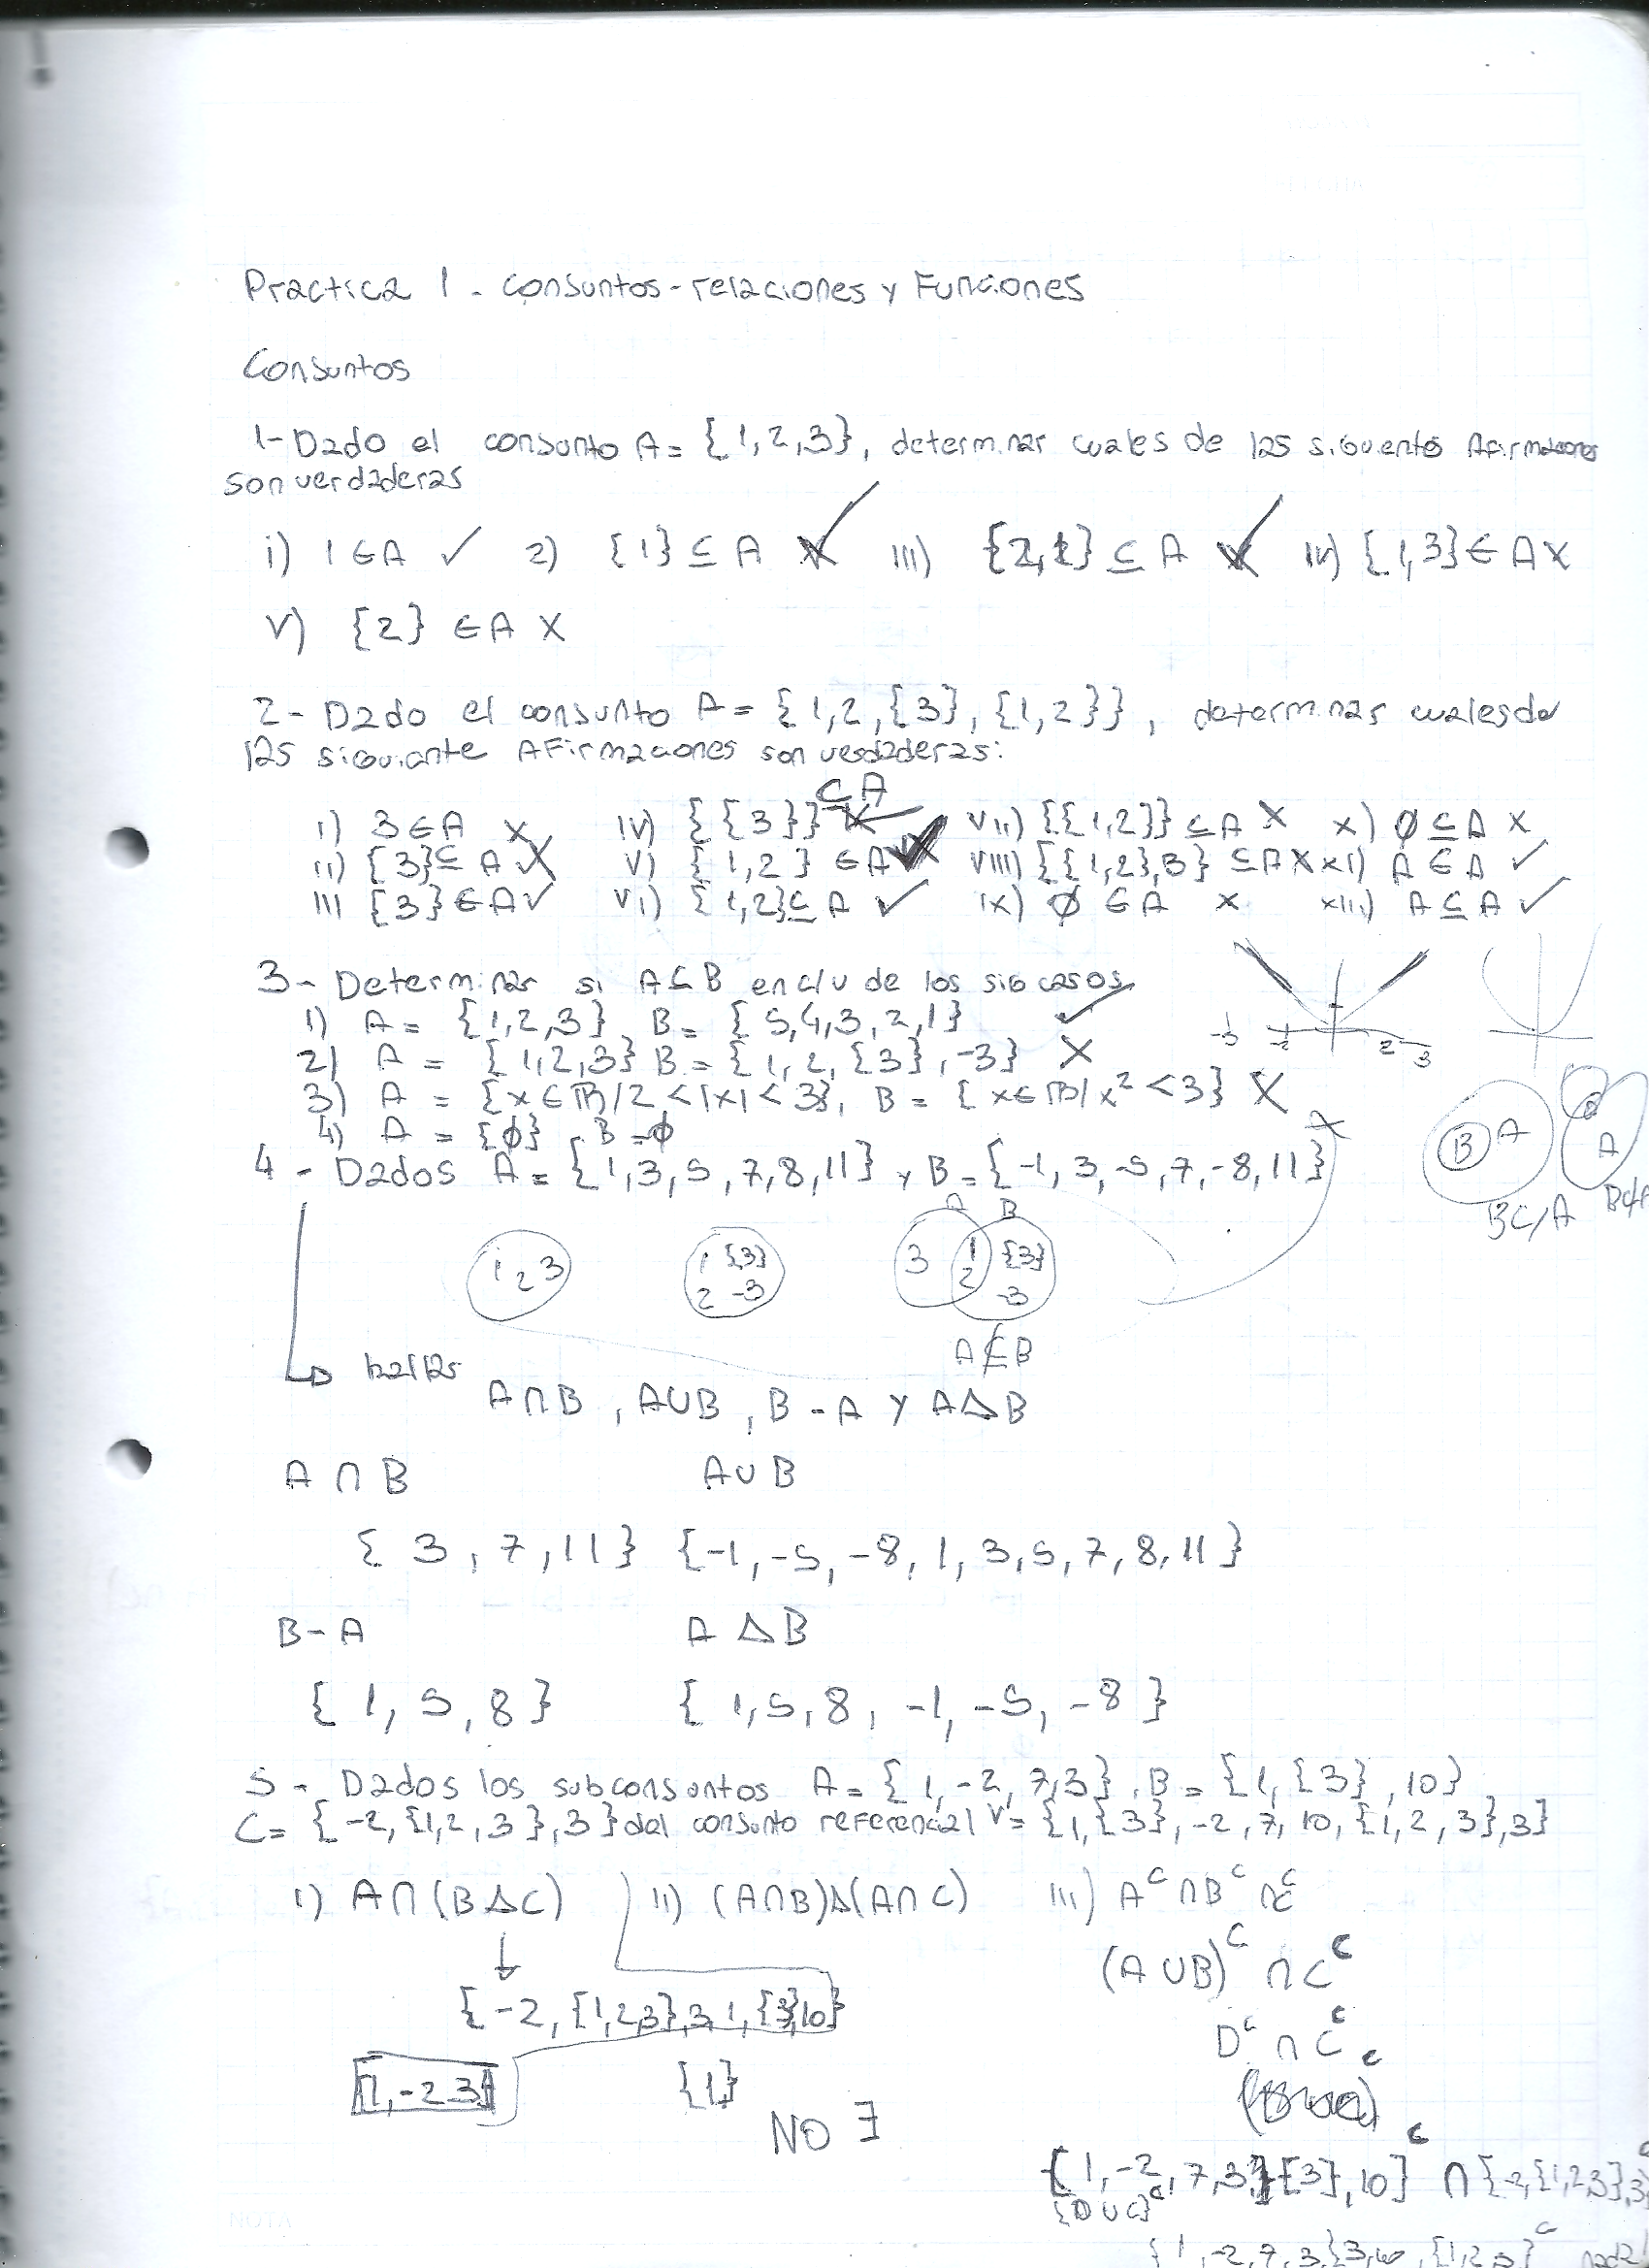 Practica 1 - Consuntos - relaciones y Funciones
Consuntos
1- Dado el consunto A = {1,2,3}, determinar cuales de las siguiento Afirmaciones
son verdaderas
i) 1 ∈ A ✓ 2) {1} ⊆ A ✓ III) {2,1} ⊆ A ✓ IV) {1,3} ∈ A X
V) {2} ∈ A X
2- Dado el consunto A = {1,2,{3},{1,2}}, determinar cuales de
las siguiente Afirmaciones son verdaderas:
i) 3 ∈ A X IV) {{3}} ⊆ A VII) {{1,2}} ⊆ A X X) ∅ ⊆ A X
ii) {3} ⊆ A X V) {1,2} ∈ A ✓ VIII) {{1,2},3} ⊆ A X XI) A ∈ A ✓
III {3} ∈ A ✓ VI) {1,2} ⊆ A ✓ IX) ∅ ∈ A X XII) A ⊆ A ✓
3- Determinar si A ⊆ B en c/u de los sig casos
1) A = {1,2,3} B = {5,4,3,2,1} ✓
2) A = {1,2,3} B = {1,2,{3},-3} X
3) A = {x ∈ R / 2 < |x| < 3}, B = {x ∈ R / x² < 3} X
4) A = {∅}, B = ∅ X
-3 -2 2 3
B A
B ⊂ A
A
B ⊄ A
4- Dados A = {1,3,5,7,8,11} y B = {-1,3,-5,7,-8,11}
A B
1 2 3
1 {3} 2 -3
3 1 2 {3} -3
A ⊈ B
hallar
A∩B, A∪B, B-A y A△B
A ∩ B A ∪ B
{3,7,11} {-1,-5,-8,1,3,5,7,8,11}
B-A A △ B
{1,5,8} {1,5,8,-1,-5,-8}
5- Dados los subconsuntos A = {1,-2,7,3}, B = {1,{3},10}
C = {-2,{1,2,3},3} del consunto referencial V = {1,{3},-2,7,10,{1,2,3},3}
1) A∩(B△C) 11) (A∩B)△(A∩C) III) Aᶜ∩Bᶜ∩Cᶜ
(A∪B)ᶜ ∩ Cᶜ
{-2,{1,2,3},3,1,{3},10}
Dᶜ ∩ Cᶜ
{1,-2 3} {1}
NO ∃
{1,-2,7,3,{3},10}ᶜ ∩ {-2,{1,2,3},3
(D∪C)ᶜ
{1,-2,7,3,{3},10,{1,2,3}ᶜ